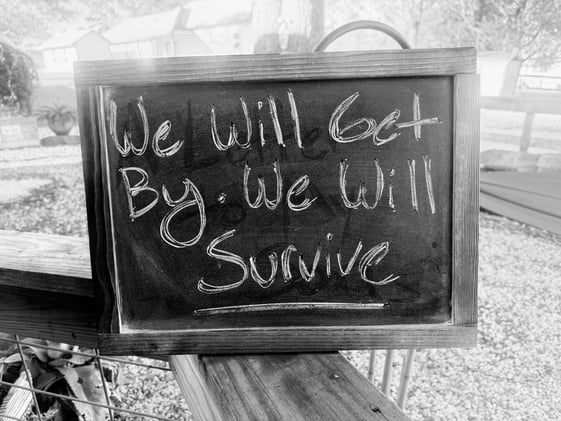 We Will Get
By. We Will
Survive